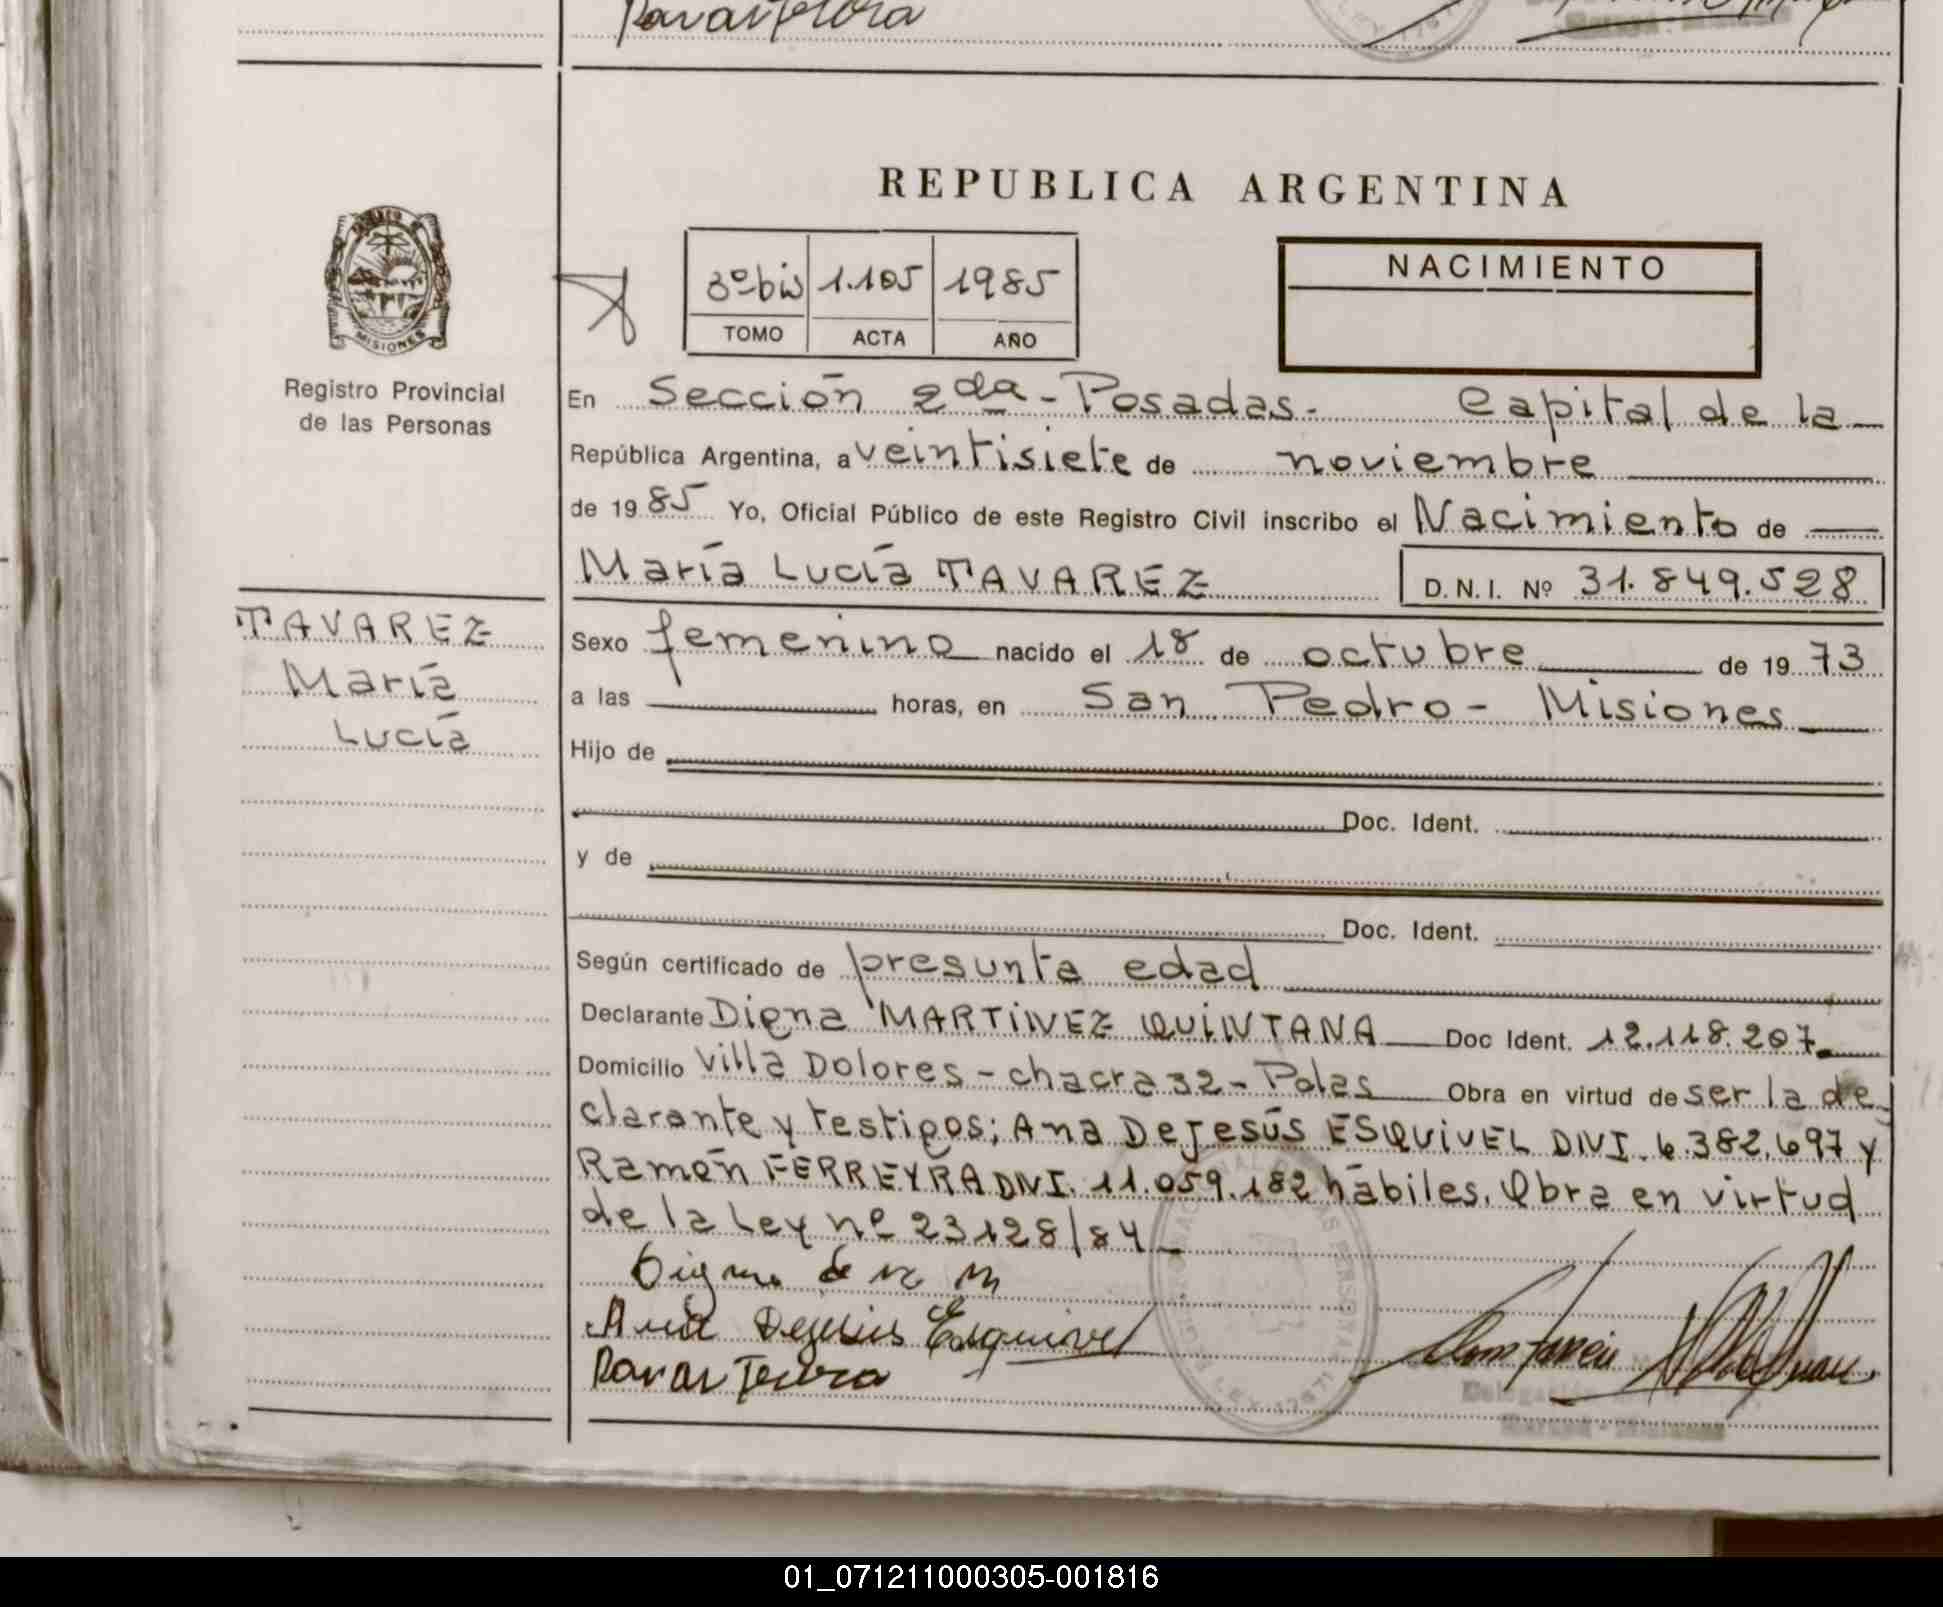 REPUBLICA ARGENTINA
3º bis 1.105 1985
TOMO ACTA AÑO
NACIMIENTO
MISIONES
Registro Provincial
de las Personas
En Sección 2da - Posadas - Capital de la
República Argentina, a veintisiete de noviembre
de 1985 Yo, Oficial Público de este Registro Civil inscribo el Nacimiento de
María Lucía TAVAREZ D.N.I. Nº 31.849.528
TAVAREZ
María
Lucía
Sexo femenino nacido el 18 de octubre de 1973
a las horas, en San Pedro - Misiones
Hijo de
Doc. Ident.
y de
Doc. Ident.
Según certificado de presunta edad
Declarante Digna MARTINEZ QUINTANA Doc Ident. 12.118.207
Domicilio Villa Dolores - chacra 32 - Pdas Obra en virtud de ser la de
clarante y testigos; Ana De Jesús ESQUIVEL DNI. 6.382.697 y
Ramón FERREYRA DNI. 11.059.182 hábiles. Obra en virtud
de la Ley nº 23128/84
Ana Dejesus Esquivel
01_071211000305-001816